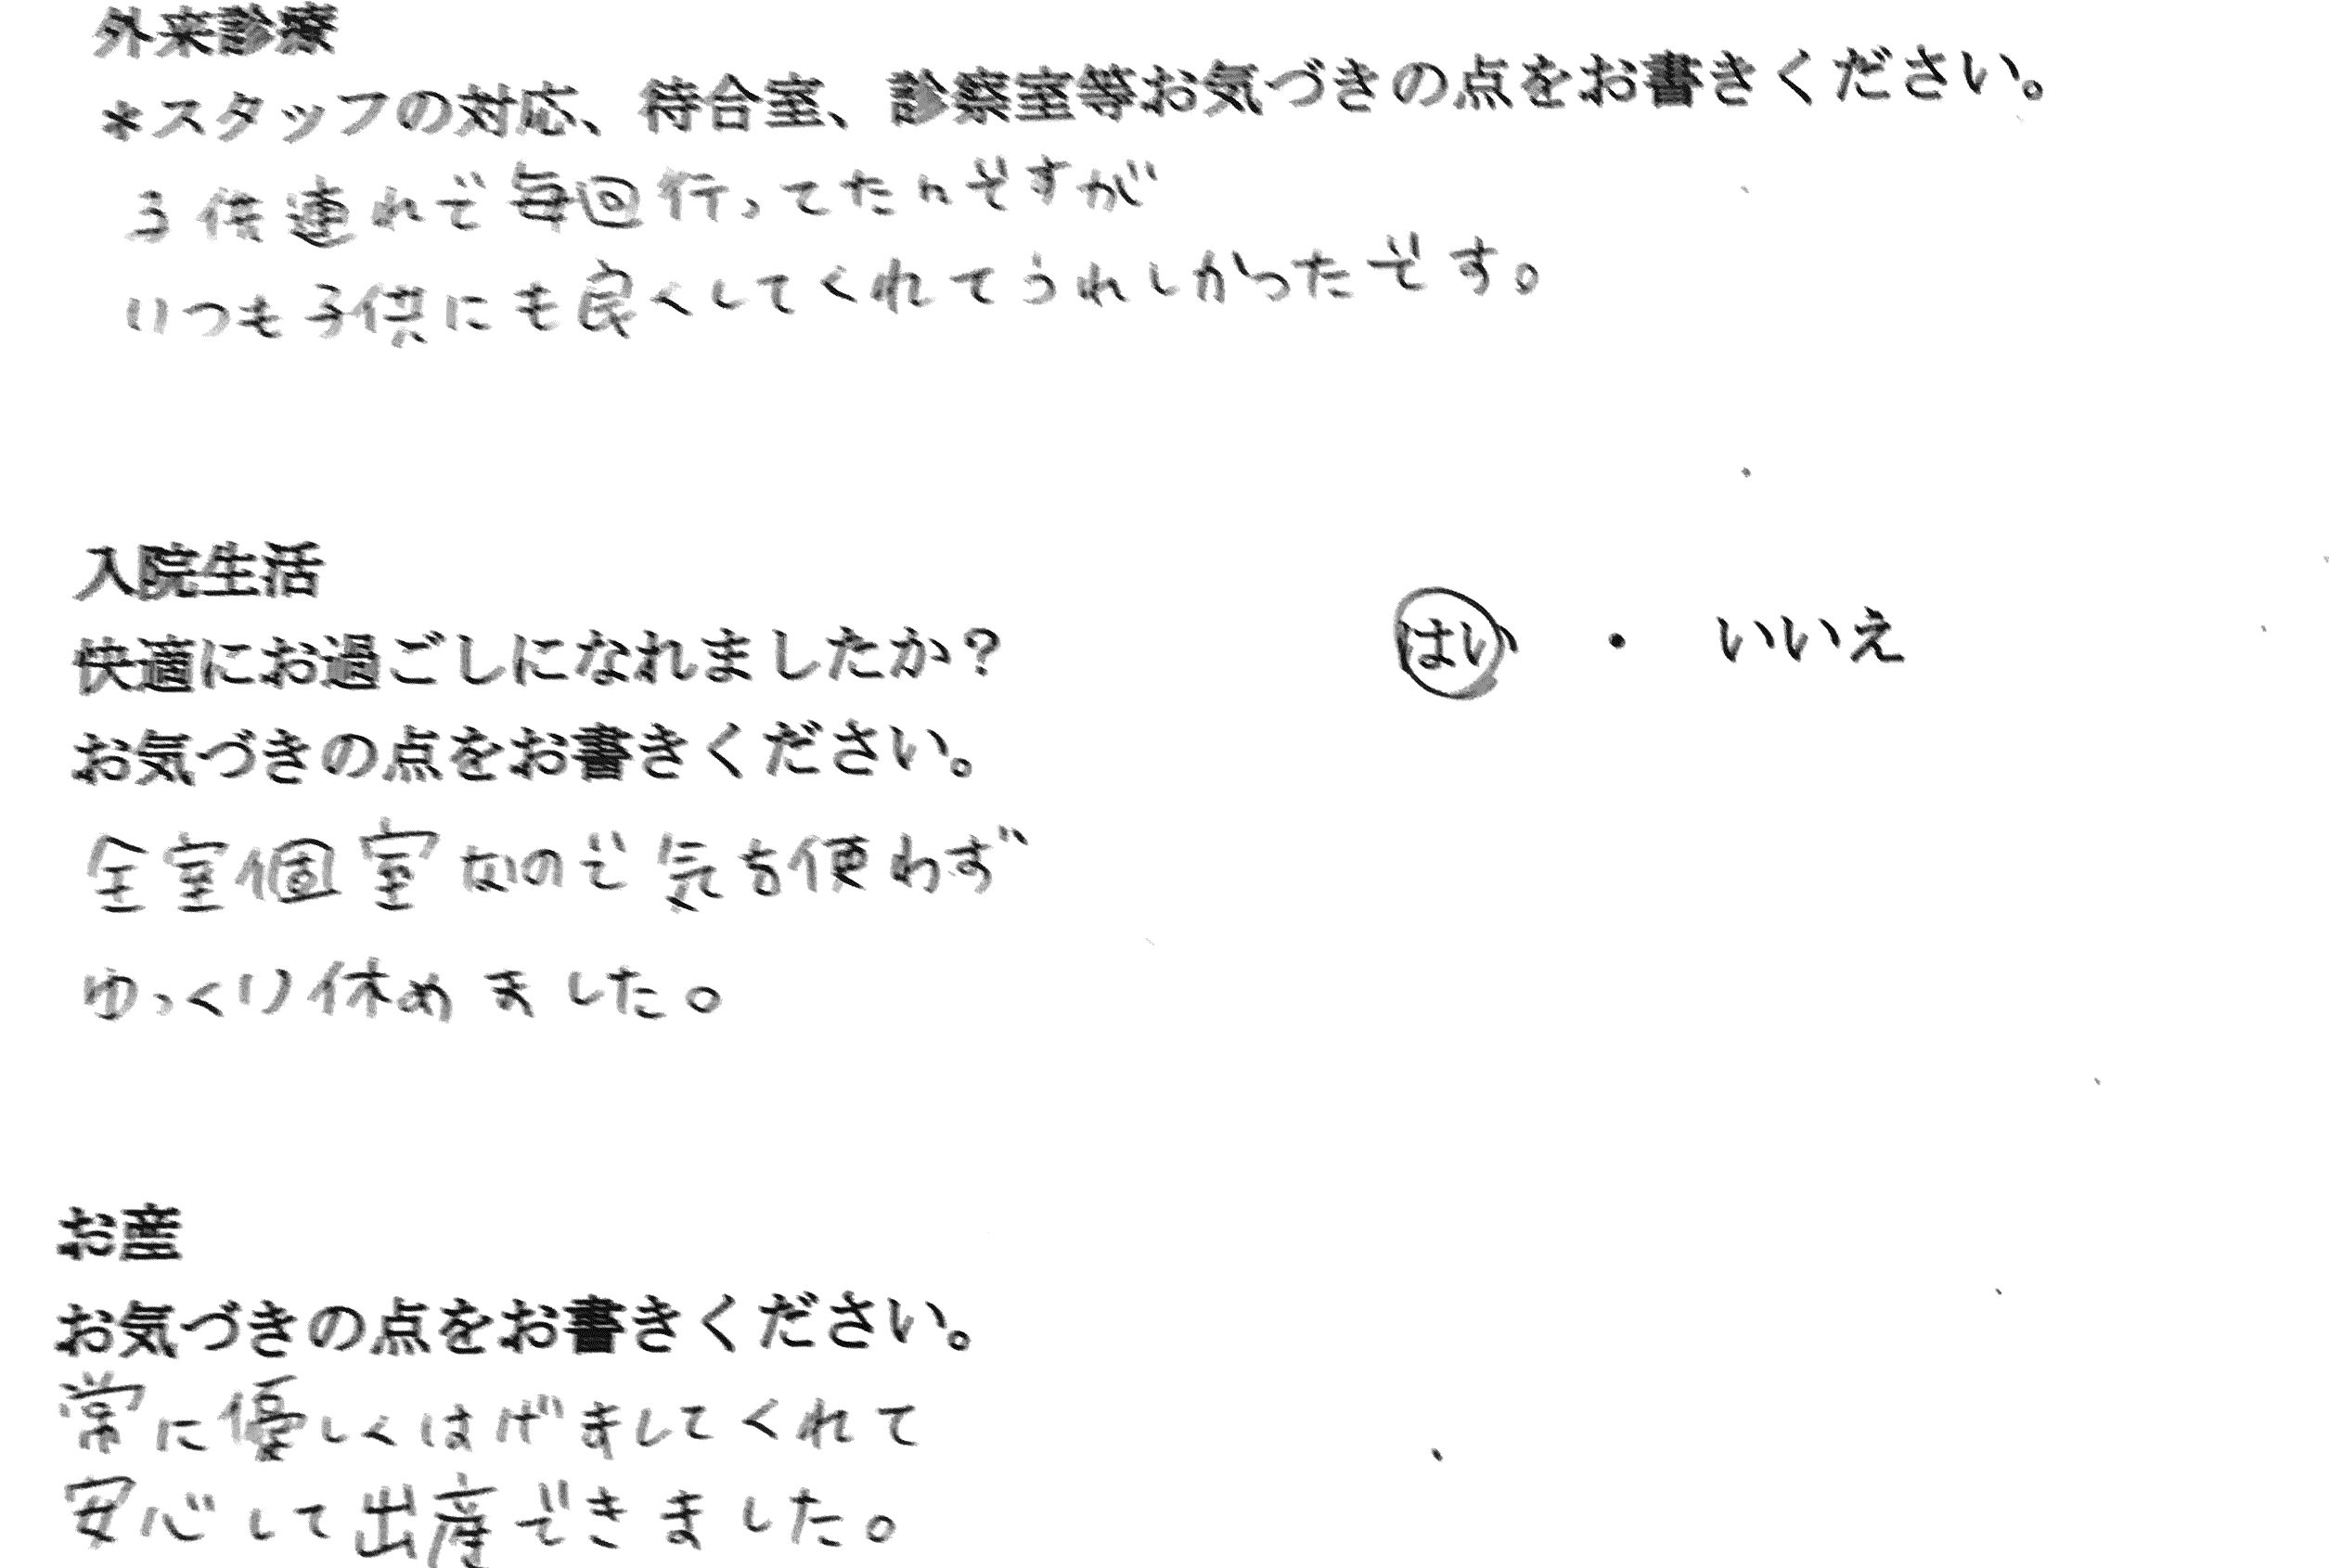 外来診療
*スタッフの対応、待合室、診察室等お気づきの点をお書きください。
子供連れで毎回行ってたんですが
いつも子供にも良くしてくれてうれしかったです。
入院生活
快適にお過ごしになれましたか？ はい ・ いいえ
お気づきの点をお書きください。
全室個室なので気を使わず
ゆっくり休めました。
お産
お気づきの点をお書きください。
常に優しくはげましてくれて
安心して出産できました。